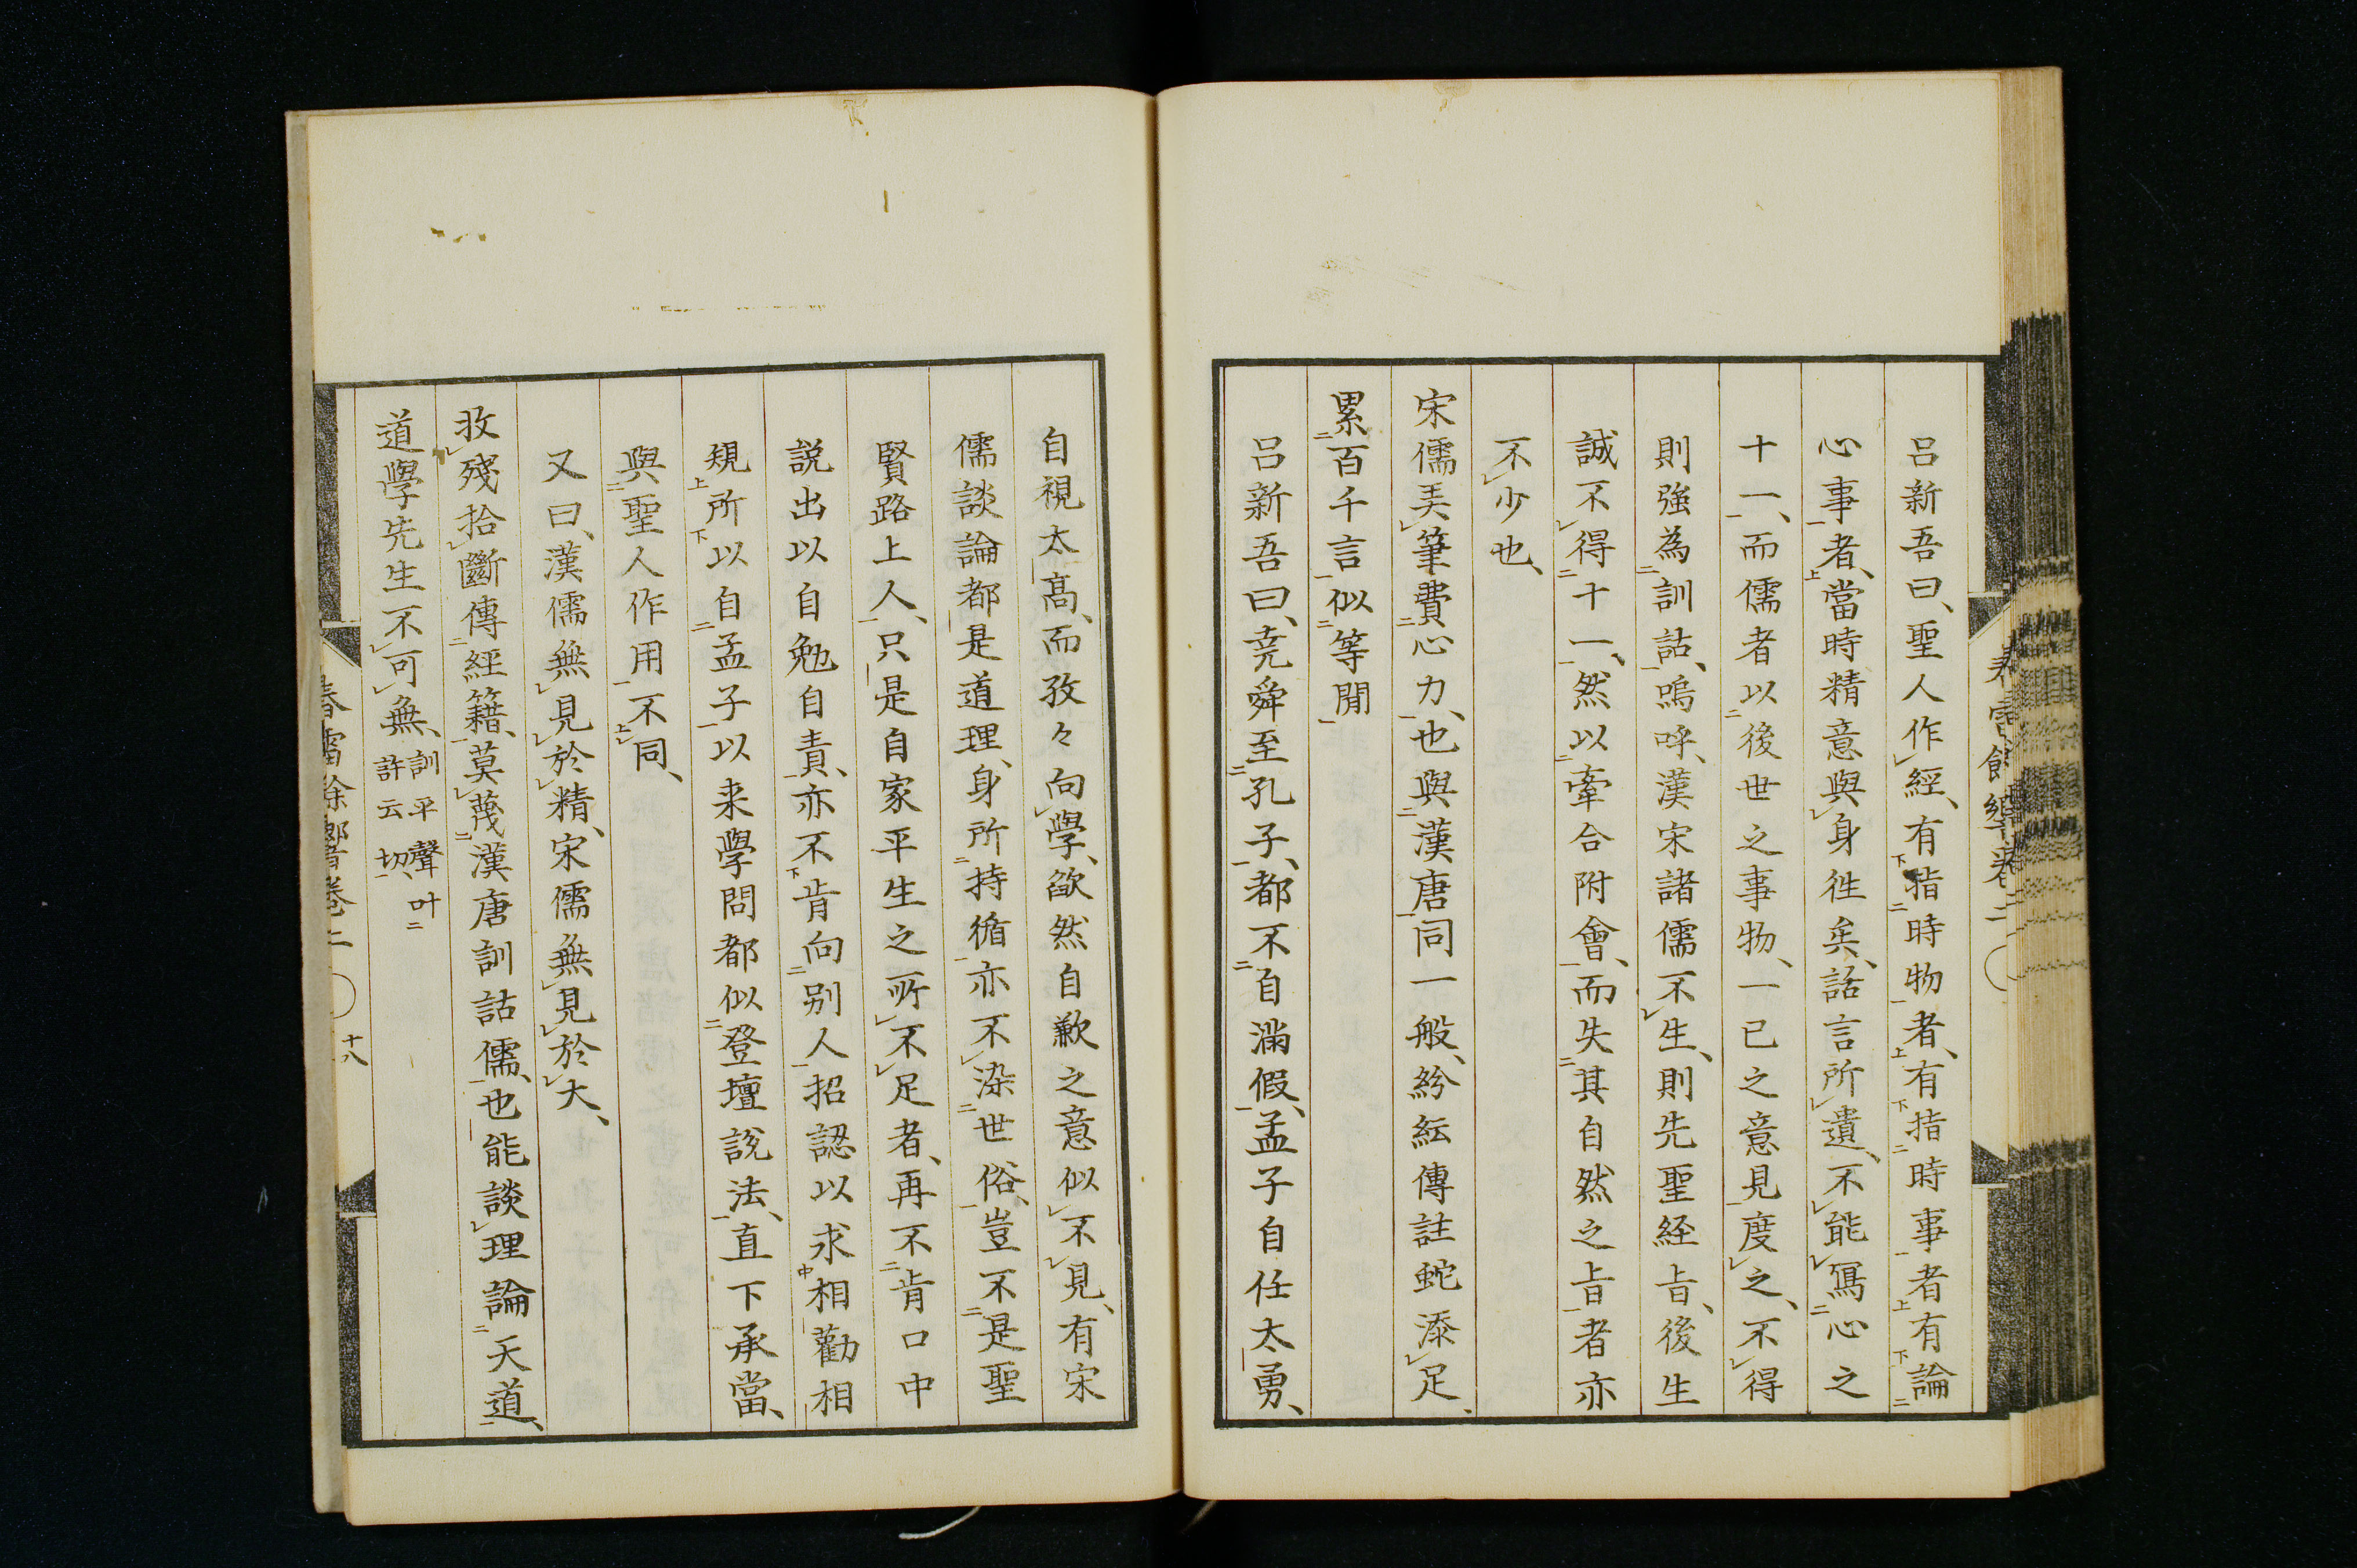 呂新吾曰、聖人作經、有指時物者、有指時事者有論
心事者、當時精意與身徃矣、話言所遺、不能冩心之
十一、而儒者以後世之事物、一已之意見度之、不得
則強為訓詁、嗚呼、漢宋諸儒不生、則先聖経旨、後生
誠不得十一、然以牽合附會、而失其自然之旨者亦
不少也、
宋儒弄筆費心力、也與漢唐同一般、紛紜傳註蛇添足、
累百千言似等閒
呂新吾曰、尭舜至孔子、都不自滿假、孟子自任太勇、
自視太高、而孜々向學、欿然自歉之意似不見、有宋
儒談論都是道理、身所持循亦不染世俗、豈不是聖
賢路上人、只是自家平生之所不足者、再不肯口中
説出以自勉自責、亦不肯向別人招認以求相勸相
規所以自孟子以来學問都似登壇說法、直下承當、
與聖人作用不同、
又曰、漢儒無見於精、宋儒無見於大、
收殘拾斷傳經籍、莫蔑漢唐訓詁儒、也能談理論天道、
道學先生不可無、訓平聲叶
許云切、
春雷餘響卷二
十八